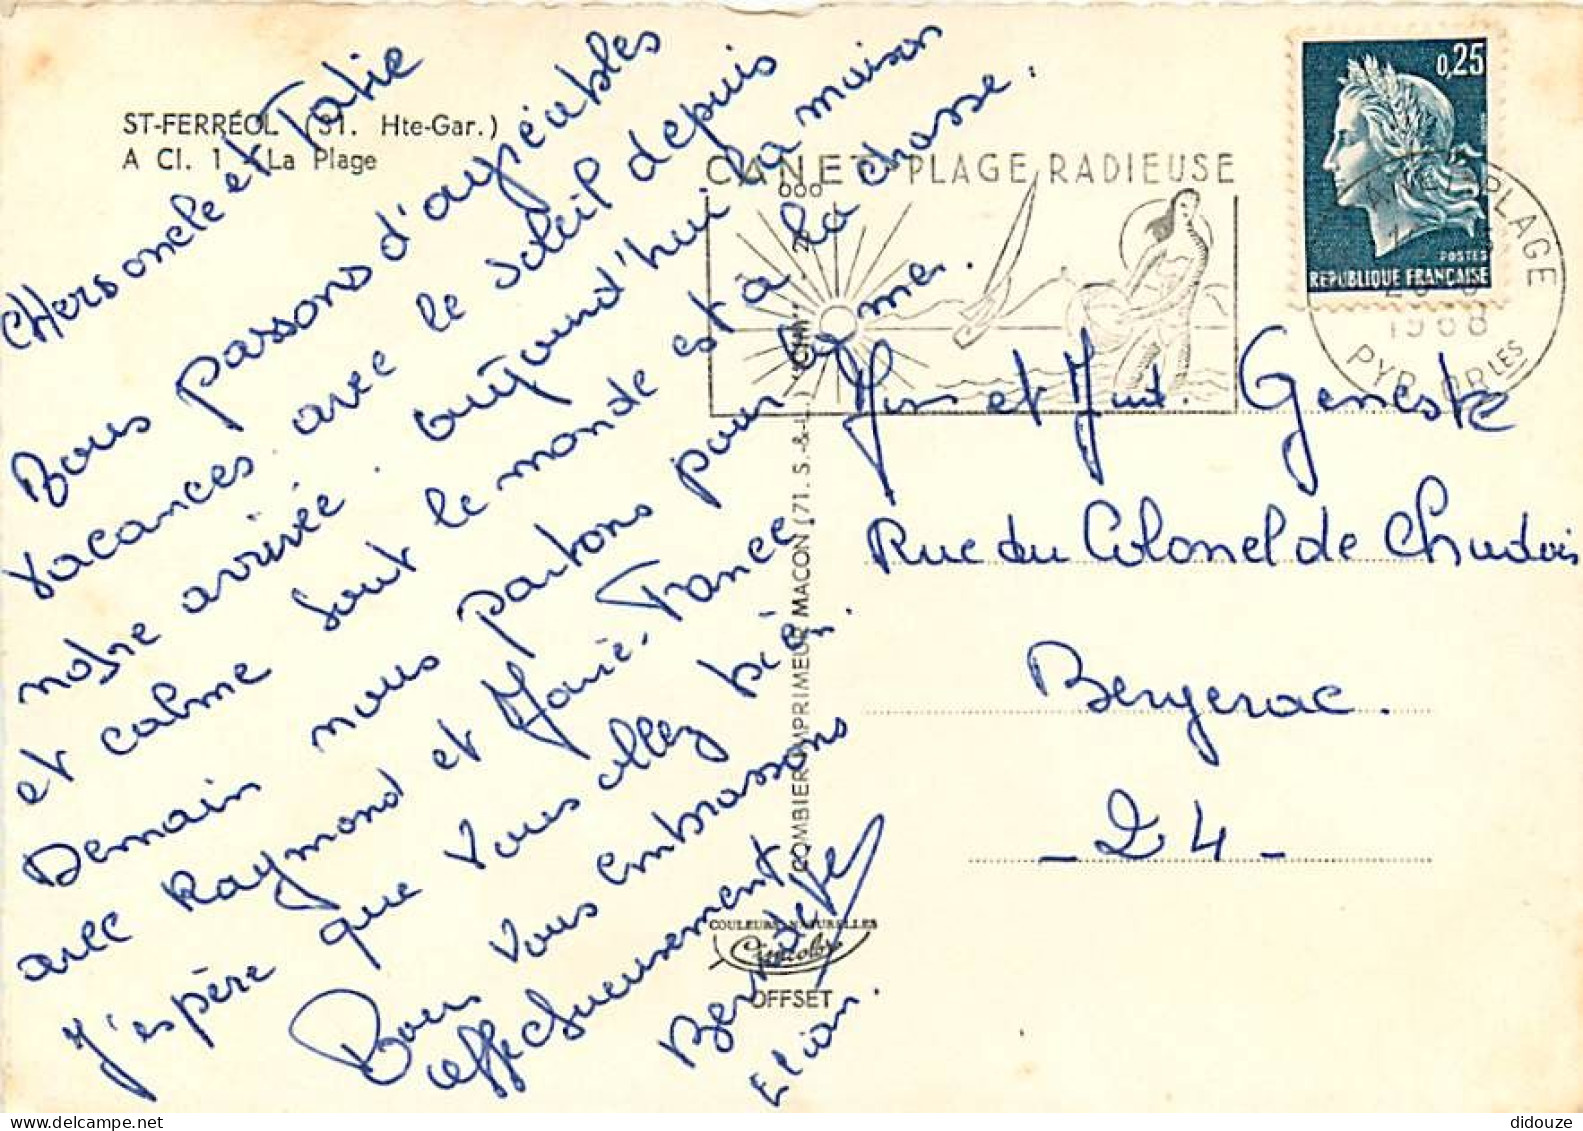 ST-FERRÉOL (31. Hte-Gar.)
A Cl. 1 - La Plage
Chers oncle et Tatie
Nous passons d'agréables
vacances avec le soleil depuis
notre arrivée. aujourd'hui la maison
et calme tout le monde est à la chasse.
Demain nous partons pour la mer.
avec Raymond et Marie-France
J'espère que vous allez bien.
Nous vous embrassons
affectueusement
Bernadette
Elian.
CANET PLAGE RADIEUSE
0,25
POSTES
REPUBLIQUE FRANÇAISE
CANET PLAGE
1968
PYR. ORLES
Mr et Mme Geneste
Rue du Colonel de Chadois
Bergerac.
- 24 -
COMBIER IMPRIMEUR MACON (71. S.-&-L.) "CIM"
COULEURS NATURELLES
Cimcolor
OFFSET
didouze